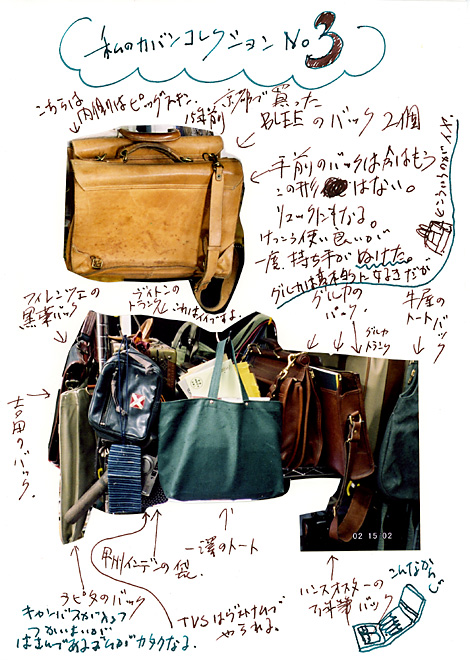 私のカバンコレクション No 3
こちらは
内側はピッグスキン。
15年前
京都で買った
BLEEのバック 2個
手前のバックは今はもう
この形はない。
リュックにもなる。
けっこう使い良いが
一度、持ち手がぬけた。
グルカは基本的に
フィレンツェの
黒革バック
デイトンの
トランク
これはイイですよ。
グルカの
バック。
グルカ
トランク
牛屋の
トートバック
吉田のバック。
02 15 02
一澤のトート
甲州インデンの袋。
ラピタのバック
キャンバスが
つかいよいが
カタクなる。
TVSはヴェトナムで
やられる。
ハンスオスターの
バック
こんなかんじ